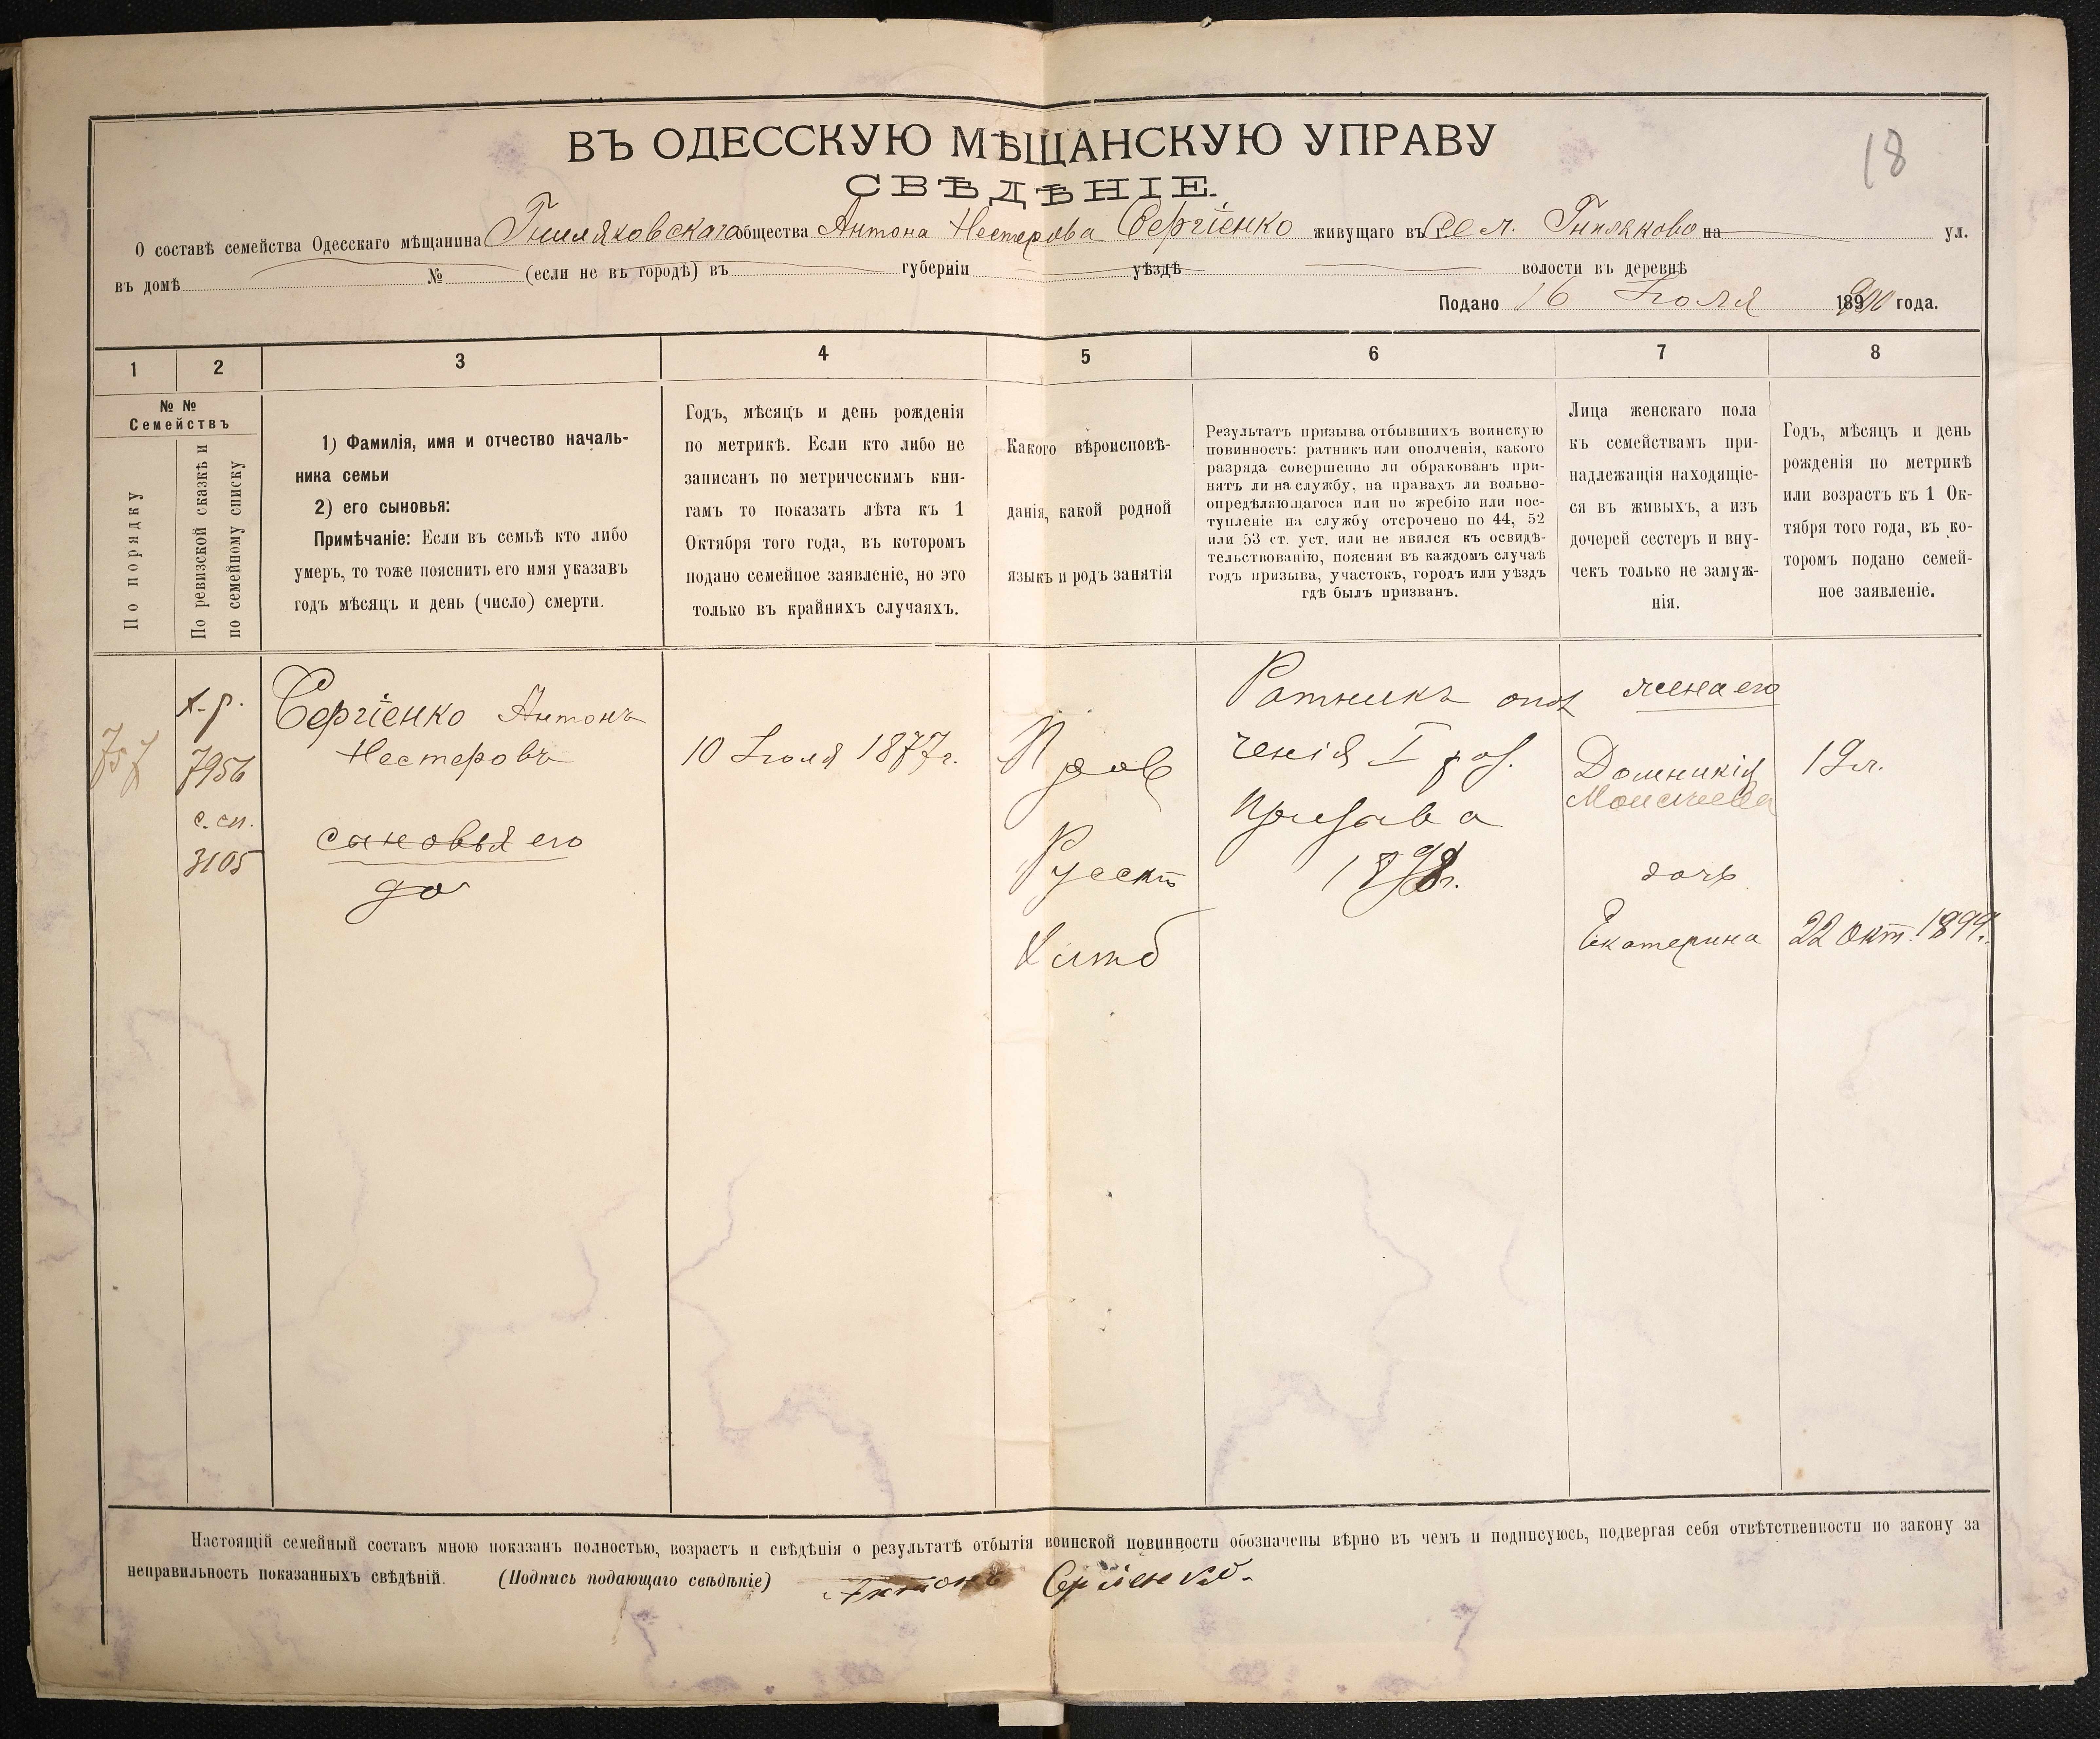 18
ВЪ ОДЕССКУЮ МѢЩАНСКУЮ УПРАВУ
СВѢДѢНІЕ.
О составѣ семейства Одесскаго мѣщанина Гниляковскаго общества Антона Нестерова Сергіенко живущаго въ сел. Гниляково на ул.
въ домѣ № (если не въ городѣ) въ губерніи уѣздѣ волости въ деревнѣ
Подано 16 Іюля 1900 года.
1 2 3 4 5 6 7 8
№ №
Семействъ
По порядку
По ревизской сказкѣ и
по семейному списку
1) Фамилія, имя и отчество началь-
ника семьи
2) его сыновья:
Примѣчаніе: Если въ семьѣ кто либо
умеръ, то тоже пояснить его имя указавъ
годъ мѣсяцъ и день (число) смерти.
Годъ, мѣсяцъ и день рожденія
по метрикѣ. Если кто либо не
записанъ по метрическимъ кни-
гамъ то показать лѣта къ 1
Октября того года, въ которомъ
подано семейное заявленіе, но это
только въ крайнихъ случаяхъ.
Какого вѣроисповѣ-
данія, какой родной
языкъ и родъ занятія
Результатъ призыва отбывшихъ воинскую
повинность: ратникъ или ополченія, какого
разряда совершенно ли обракованъ при-
нятъ ли на службу, на правахъ ли вольно-
опредѣляющагося или по жребію или пос-
тупленіе на службу отсрочено по 44, 52
или 53 ст. уст. или не явился къ освидѣ-
тельствованію, поясняя въ каждомъ случаѣ
годъ призыва, участокъ, городъ или уѣздъ
гдѣ былъ призванъ.
Лица женскаго пола
къ семействамъ при-
надлежащія находящіе-
ся въ живыхъ, а изъ
дочерей сестеръ и вну-
чекъ только не замуж-
нія.
Годъ, мѣсяцъ и день
рожденія по метрикѣ
или возрастъ къ 1 Ок-
тября того года, въ ко-
торомъ подано семей-
ное заявленіе.
757
х. р.
7956
с. сп.
3105
Сергіенко Антонъ
Нестеровъ
сыновья его
10 Іюля 1877 г.
Прав
Русскі
Хлѣб
Ратникъ опол
ченія I раз.
призыва
1898 г.
жена его
Домникія
Моисеева
19 л.
дочь
Екатерина
22 Окт. 1899 г.
Настоящій семейный составъ мною показанъ полностью, возрастъ и свѣдѣнія о результатѣ отбытія воинской повинности обозначены вѣрно въ чемъ и подписуюсь, подвергая себя отвѣтственности по закону за
неправильность показанныхъ свѣдѣній. (Подпись подающаго свѣдѣніе) Антонъ Сергіенко.